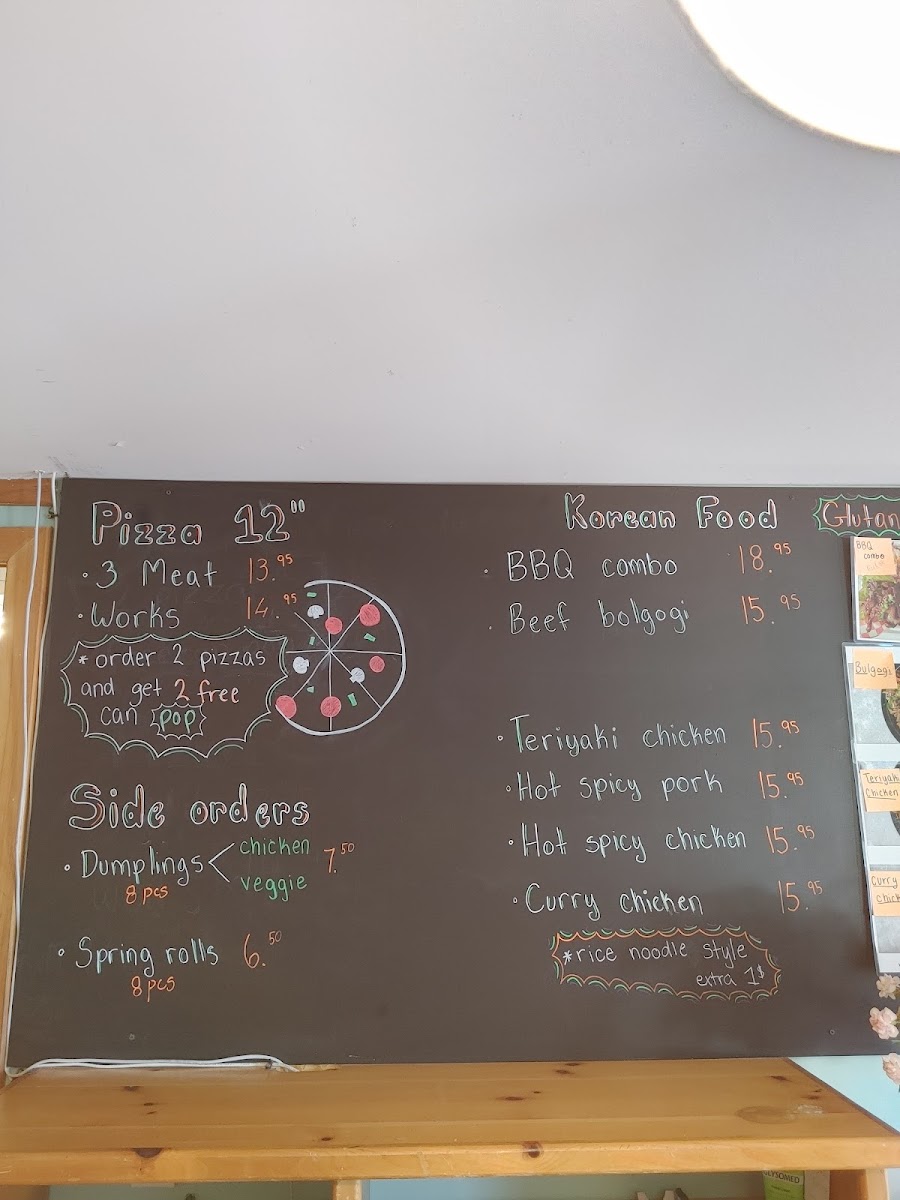 Pizza 12"
· 3 Meat 13.95
· Works 14.95
* order 2 pizzas
and get 2 free
can pop
Side orders
· Dumplings < chicken 7.50
veggie
8 pcs
· Spring rolls 6.50
8 pcs
Korean Food
· BBQ combo 18.95
· Beef bolgogi 15.95
· Teriyaki chicken 15.95
· Hot spicy pork 15.95
· Hot spicy chicken 15.95
· Curry chicken 15.95
* rice noodle style
extra 1$
Glutan
BBQ
combo
Bulgogi
Teriyaki
Chicken
Curry
chick